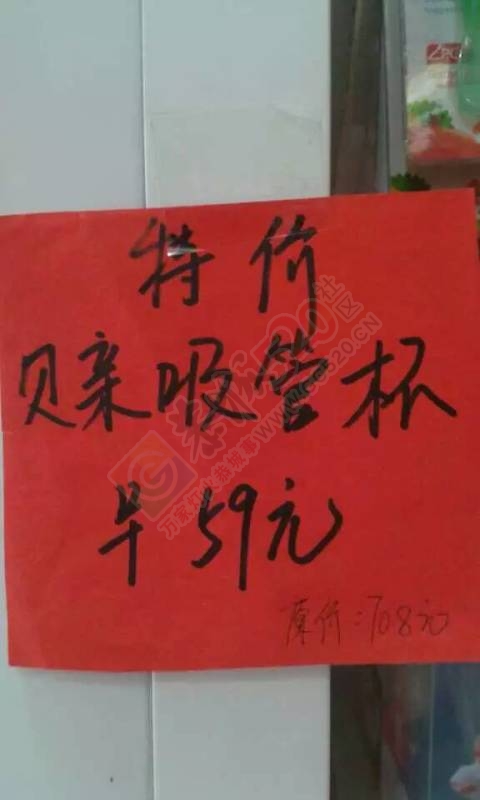 特价
贝亲吸管杯
早59元
原价:70.8元